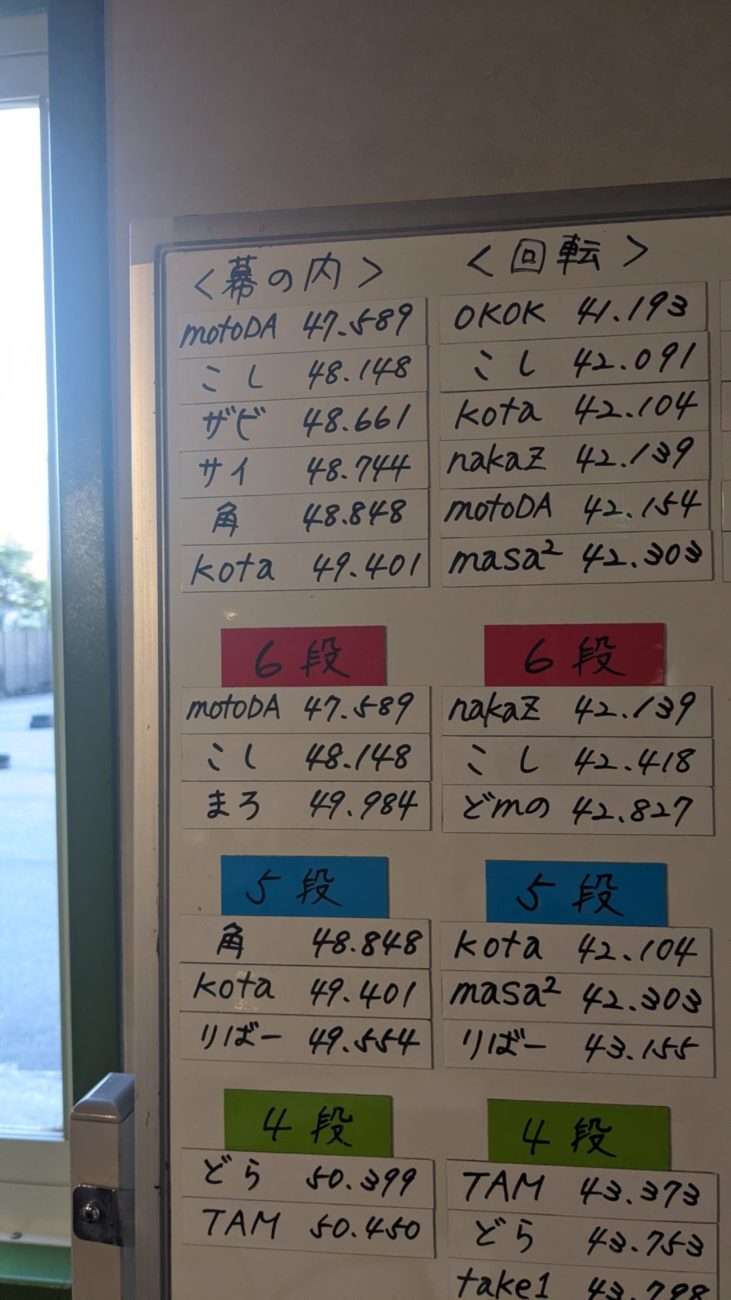 <幕の内>
motoDA 47.589
こし 48.148
ザビ 48.661
サイ 48.744
角 48.848
kota 49.401
6段
motoDA 47.589
こし 48.148
まろ 49.984
5段
角 48.848
kota 49.401
りばー 49.554
4段
どら 50.399
TAM 50.450
<回転>
OKOK 41.193
こし 42.091
kota 42.104
nakaZ 42.139
motoDA 42.154
masa² 42.303
6段
nakaZ 42.139
こし 42.418
どmの 42.827
5段
kota 42.104
masa² 42.303
りばー 43.155
4段
TAM 43.373
どら 43.753
take1 43.798